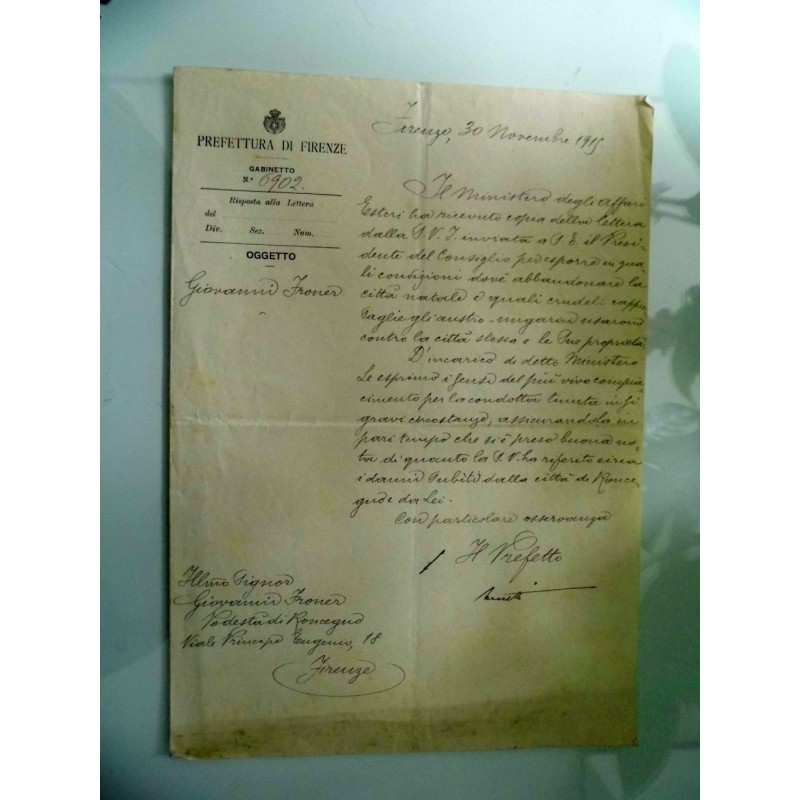 PREFETTURA DI FIRENZE
GABINETTO
N.° 6902.
Risposta alla Lettera
del
Div. Sez. Num.
OGGETTO
Giovanni Froner
Firenze, 30 Novembre 1915.
Il Ministero degli Affari
Esteri ha ricevuto copia della lettera
dalla S. V. I. inviata a S. E. il Presi-
dente del Consiglio per esporre in qua-
li condizioni dové abbandonare la
città natale e quali crudeli rappre
saglie gli austro-ungarici usarono
contro la città stessa e le Sue proprietà.
D'incarico di detto Ministero
Le esprimo i sensi del più vivo compia-
cimento per la condotta tenuta in sì
gravi circostanze, assicurandola in
pari tempo che si è preso buona no-
ta di quanto la S. V. ha riferito circa
i danni subiti dalla città di Ronce-
gno e da Lei.
Con particolare osservanza
Il Prefetto
Illmo Signor
Giovanni Froner
Podestà di Roncegno
Viale Principe Eugenio, 18
Firenze